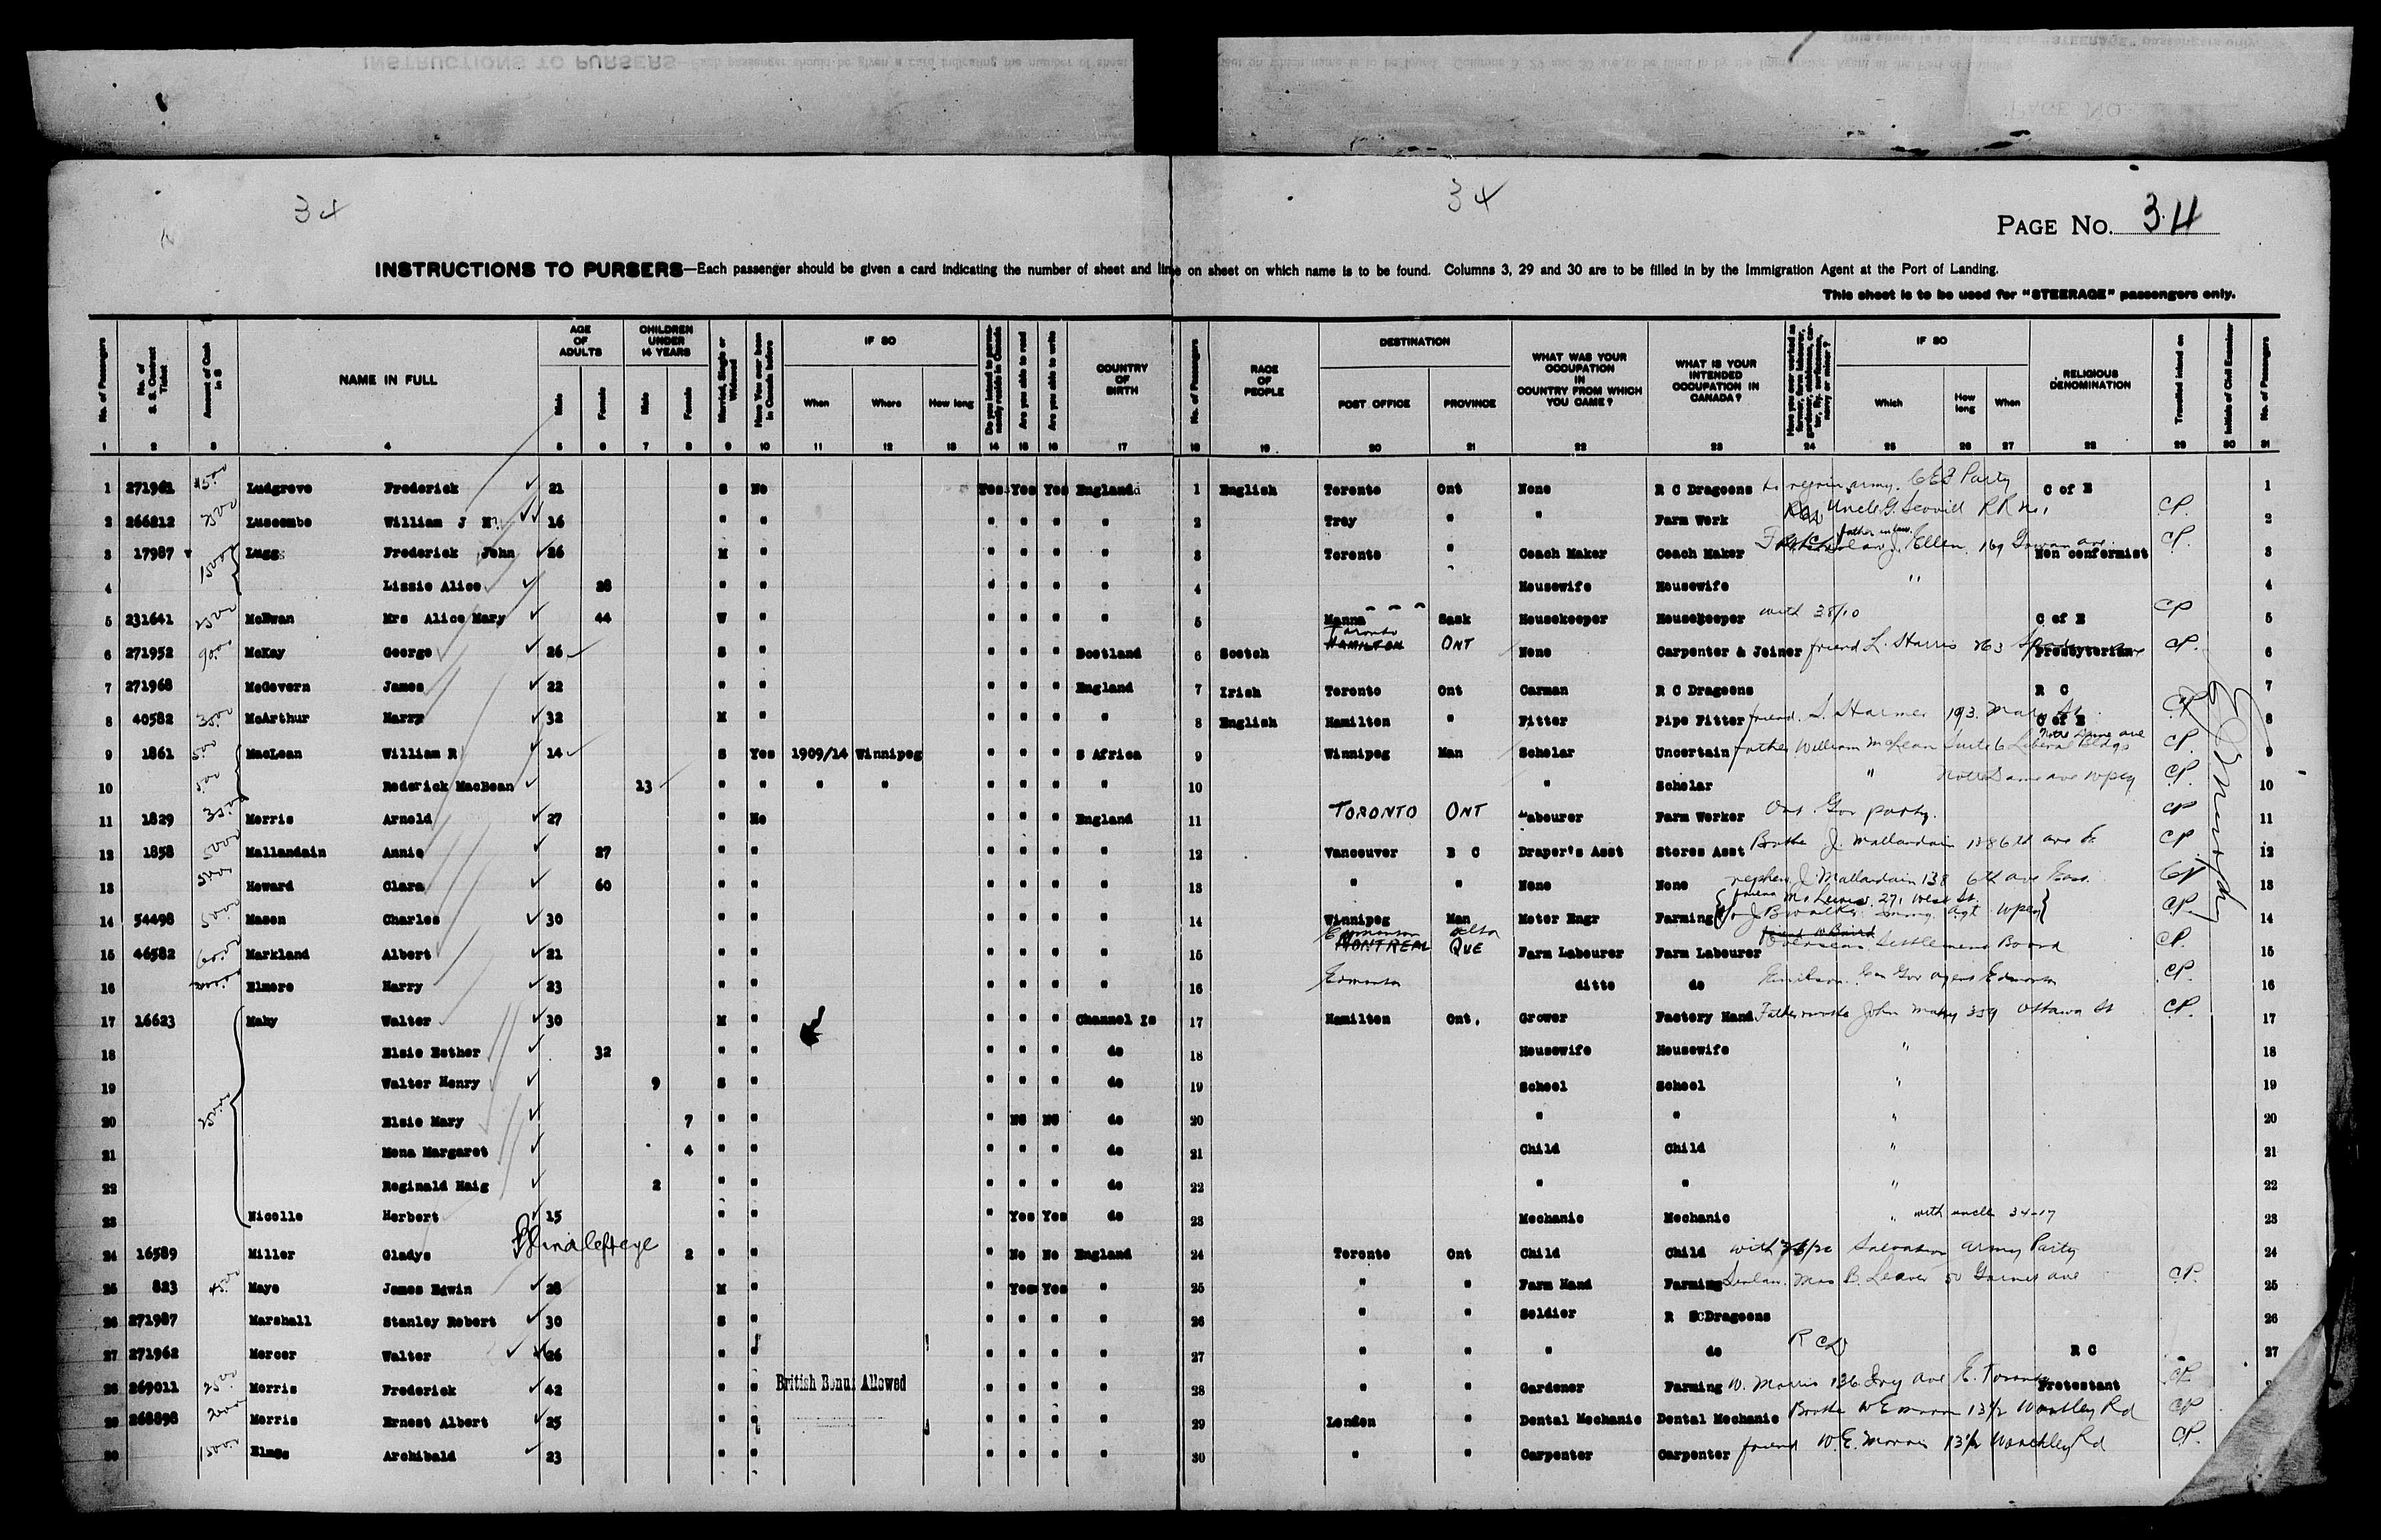 34
34
PAGE NO. 34
INSTRUCTIONS TO PURSERS—Each passenger should be given a card indicating the number of sheet and line on sheet on which name is to be found. Columns 3, 29 and 30 are to be filled in by the Immigration Agent at the Port of Landing.
This sheet is to be used for "STEERAGE" passengers only.
No. of Passengers No. of S. S. Contract Ticket Amount of Cash in $ NAME IN FULL AGE OF ADULTS Male Female CHILDREN UNDER 14 YEARS Male Female Married, Single or Widowed Have You ever been in Canada before IF SO When Where How long Do you intend to permanently reside in Canada Are you able to read Are you able to write COUNTRY OF BIRTH No. of Passengers RACE OF PEOPLE DESTINATION POST OFFICE PROVINCE WHAT WAS YOUR OCCUPATION IN COUNTRY FROM WHICH YOU CAME? WHAT IS YOUR INTENDED OCCUPATION IN CANADA? IF SO Which How long When RELIGIOUS DENOMINATION Travelled inland on Initials of Civil Examiner No. of Passengers
1 2 3 4 5 6 7 8 9 10 11 12 13 14 15 16 17 18 19 20 21 22 23 24 25 26 27 28 29 30 31
1 271961 Ludgrove Frederick 21 S No Yes Yes Yes England 1 English Toronto Ont None R C Dragoons to rejoin army. Party C of E 1
2 266812 Luscombe William J H 16 " " " " " " 2 Troy " " Farm Work Uncle G. Scovill RR no 1 CP. 2
3 17987 Lugg Frederick John 26 M " " " " " 3 Toronto " Coach Maker Coach Maker father in law J. Ellen 169 Gowan ave Non conformist CP. 3
4 Lizzie Alice 28 " " " " " " 4 Housewife Housewife " 4
5 231641 McEwan Mrs Alice Mary 44 W " " " " " 5 Manna Sask Housekeeper Housekeeper with 38/10 C of E CP 5
6 271952 90.00 McKay George 26 S " " " " Scotland 6 Scotch Toronto HAMILTON ONT None Carpenter & Joiner friend L. Harris 263 Presbyterian CP. 6
7 271968 McGovern James 22 " " " " " England 7 Irish Toronto Ont Carman R C Dragoons R C 7
8 40582 McArthur Harry 32 M " " " " " 8 English Hamilton " Fitter Pipe Fitter friend. S. Harmer 193. Mary St. C of E CP 8
9 1861 5.00 MacLean William R 14 S Yes 1909/14 Winnipeg " " " S Africa 9 Winnipeg Man Scholar Uncertain father William McLean Suite 6 Liberal Bldgs Notre Dame ave CP. 9
10 5.00 Roderick MacBean 13 " " " " " " " " 10 " Scholar " Notre Dame ave Wpeg CP. 10
11 1829 Morris Arnold 27 " No " " " England 11 TORONTO ONT Labourer Farm Worker Ont. Gov party. CP 11
12 1858 50.00 Mallandain Annie 27 " " " " " " 12 Vancouver B C Draper's Asst Stores Asst Brother J. Mallandain 138 6th ave E. CP. 12
13 Howard Clara 60 " " " " " " 13 " " None None nephew J. Mallandain 138 6th ave East. CP 13
14 54498 50.00 Mason Charles 30 " " " " " " 14 Winnipeg Man Motor Engr Farming friend Mr Lewis 271 West St. CP. 14
15 46582 60.00 Markland Albert 21 " " " " " " 15 Edmonton alta MONTREAL QUE Farm Labourer Farm Labourer Overseas Settlement Board CP. 15
16 Elmore Harry 23 " " " " " " 16 Edmonton ditto do Can Gov agent Edmonton CP. 16
17 16623 Mahy Walter 30 M " " " " Channel Is 17 Hamilton Ont. Grower Factory Hand John Mahy 359 Ottawa St CP. 17
18 Elsie Esther 32 " " " " " do 18 Housewife Housewife " 18
19 Walter Henry 9 S " " " " do 19 School School " 19
20 Elsie Mary 7 " " " NO NO do 20 " " " 20
21 Mona Margaret 4 " " " " " do 21 Child Child " 21
22 Reginald Haig 2 " " " " " do 22 " " " 22
23 Nicolle Herbert 15 " " " Yes Yes do 23 Mechanic Mechanic " with uncle 34-17 23
24 16589 Miller Gladys Blind left eye 2 " " " No No England 24 Toronto Ont Child Child with Salvation Army Party 24
25 823 45.00 Maye James Edwin 28 M " " Yes Yes " 25 " " Farm Hand Farming Mrs B. Leaver 50 Garnet ave CP. 25
26 271987 Marshall Stanley Robert 30 S " " " " " 26 " " Soldier R C Dragoons 26
27 271962 Mercer Walter 26 " " " " " " 27 " " " do R C D R C 27
28 269011 25.00 Morris Frederick 42 " " British Bonus Allowed " " " " 28 " " Gardener Farming W. Morris 136 Ivy ave E. Toronto Protestant CP
29 268898 Morris Ernest Albert 25 " " " " " " 29 London " Dental Mechanic Dental Mechanic Brother W E Morris 13½ Wortley Rd CP
30 Elmes Archibald 23 " " " " " " 30 " " Carpenter Carpenter friend W. E. Morris 13½ Wortley Rd CP.